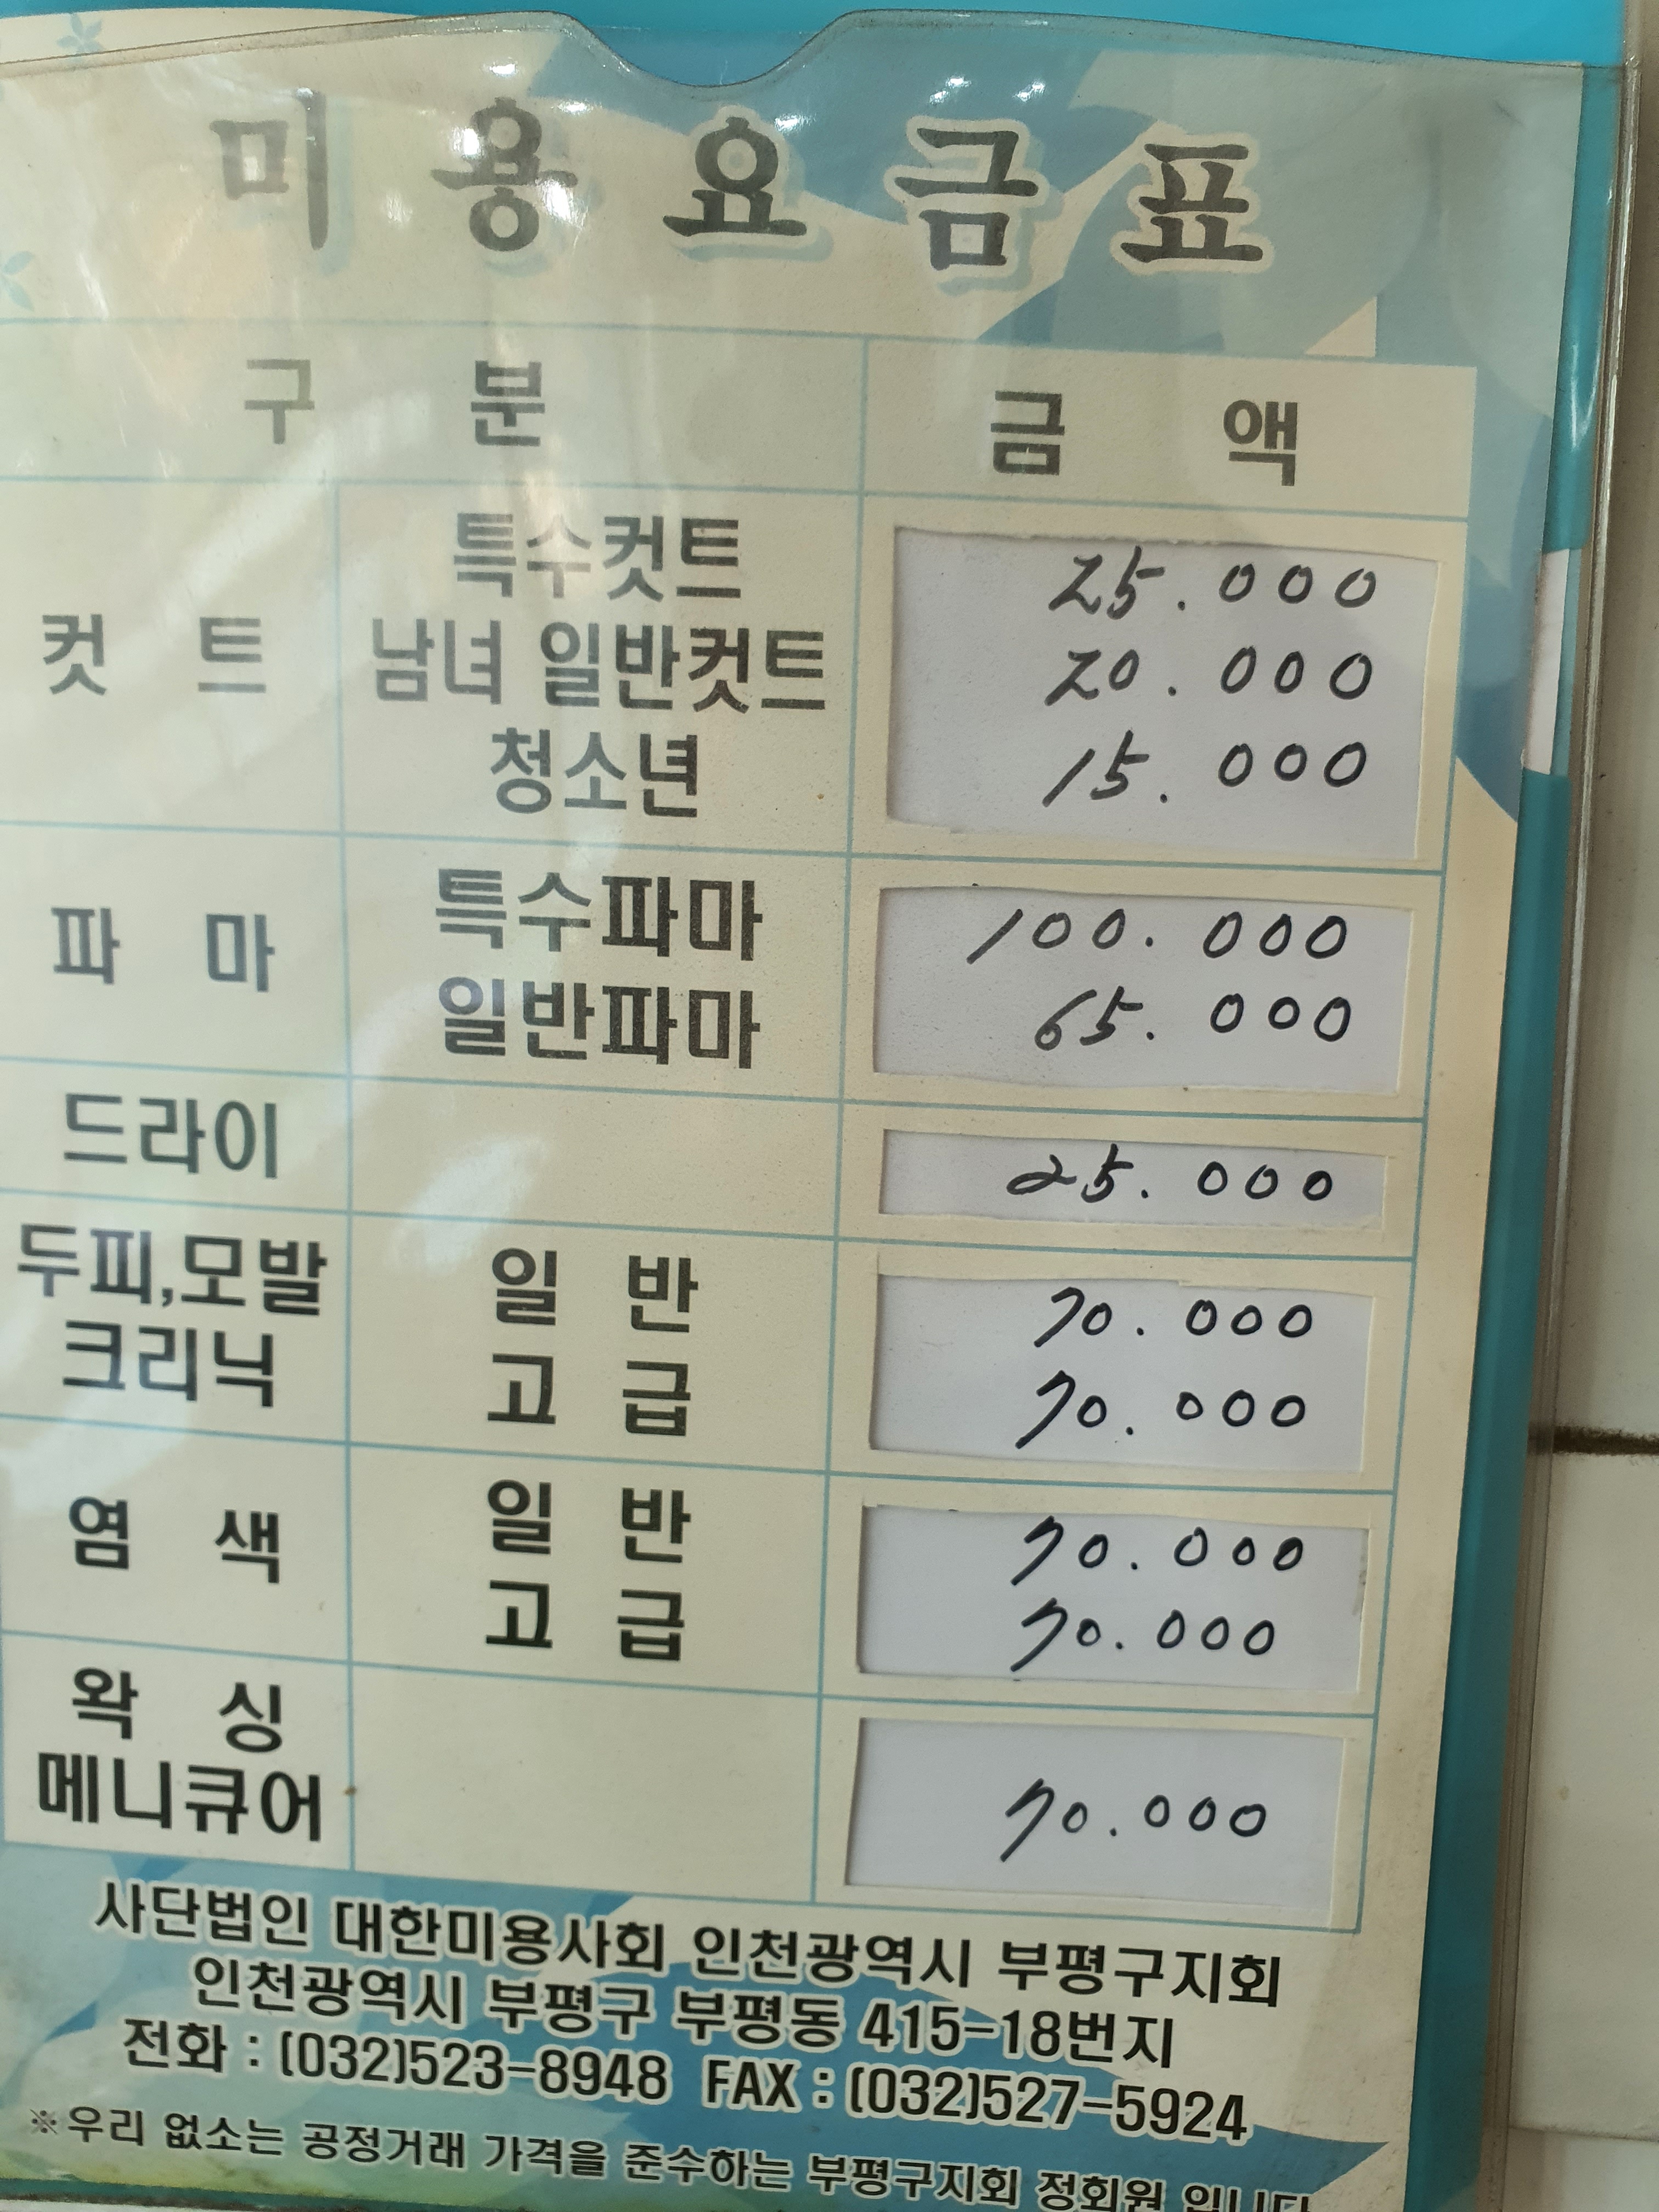 미용요금표
구 분 금 액
특수컷트 25.000
컷 트 남녀 일반컷트 20.000
청소년 15.000
파 마 특수파마 100.000
일반파마 65.000
드라이 25.000
두피,모발 일 반 70.000
크리닉 고 급 70.000
염 색 일 반 70.000
고 급 70.000
왁 싱
메니큐어 70.000
사단법인 대한미용사회 인천광역시 부평구지회
인천광역시 부평구 부평동 415-18번지
전화 : (032)523-8948 FAX : (032)527-5924
※우리 없소는 공정거래 가격을 준수하는 부평구지회 정회원 입니다